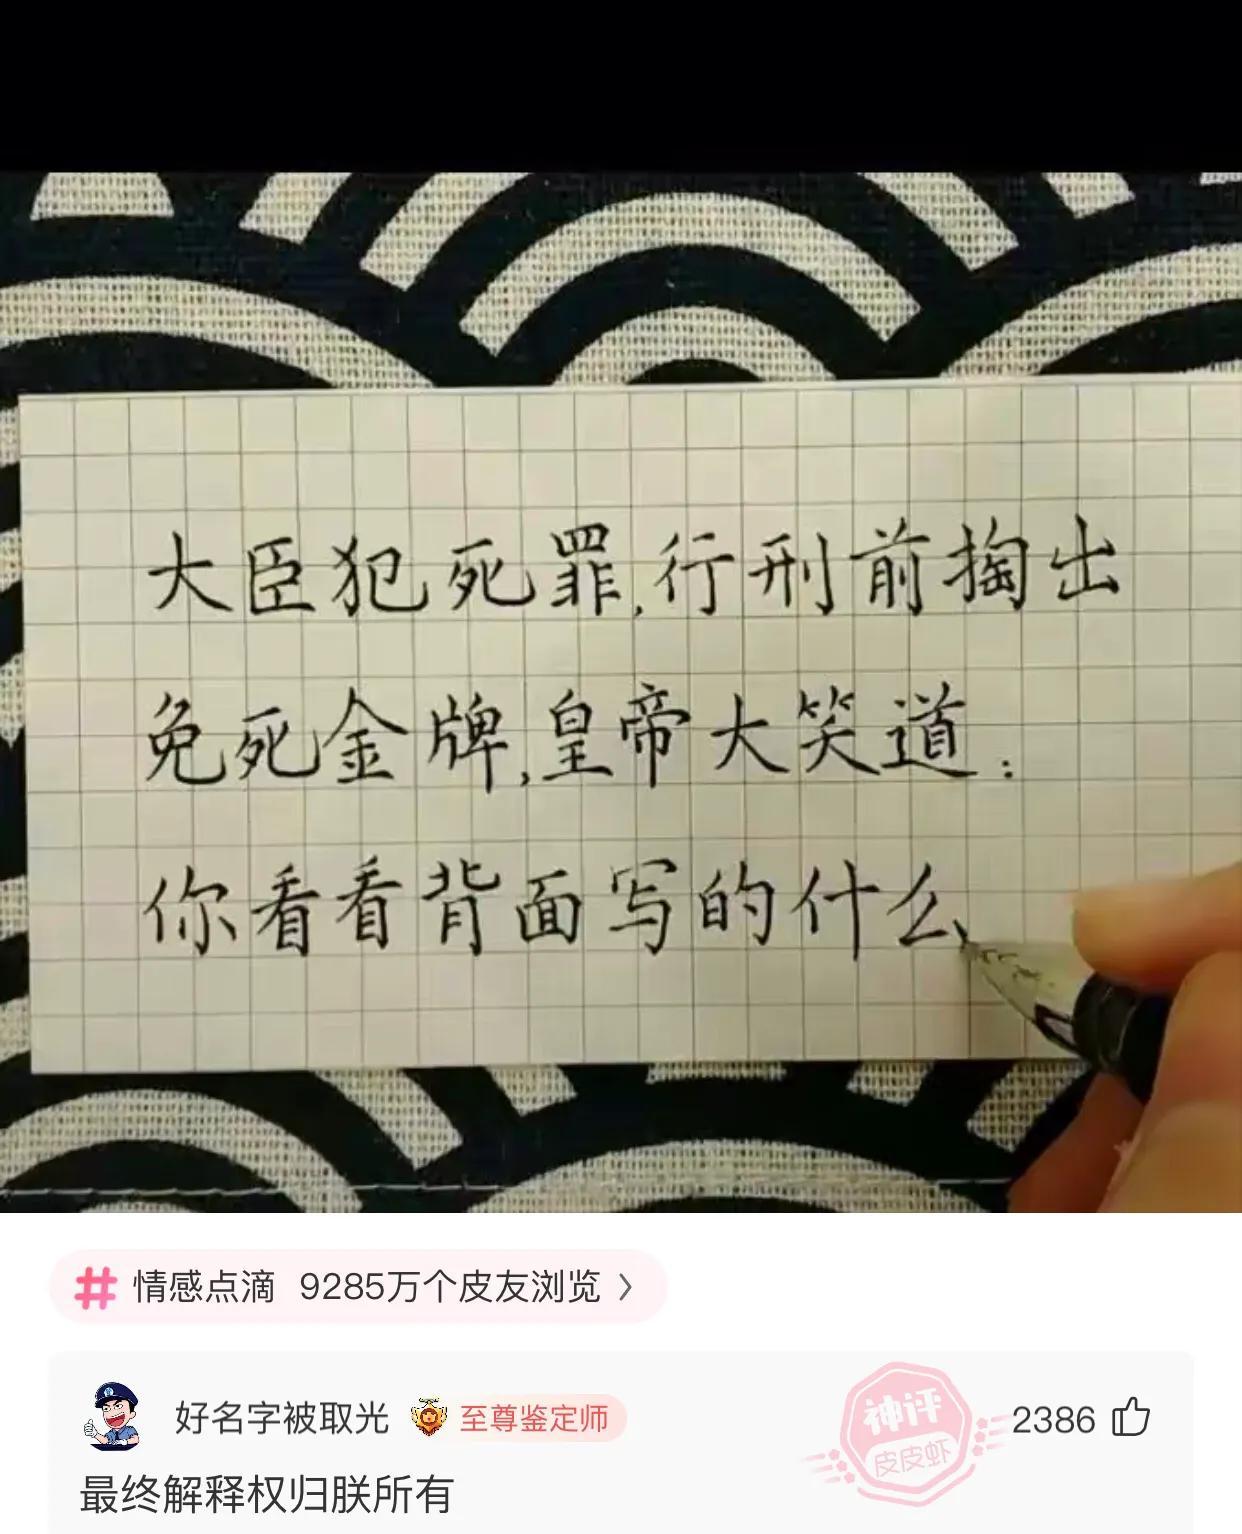 大臣犯死罪,行刑前掏出
免死金牌,皇帝大笑道:
你看看背面写的什么
情感点滴 9285万个皮友浏览
好名字被取光 至尊鉴定师 神评 皮皮虾 2386
最终解释权归朕所有